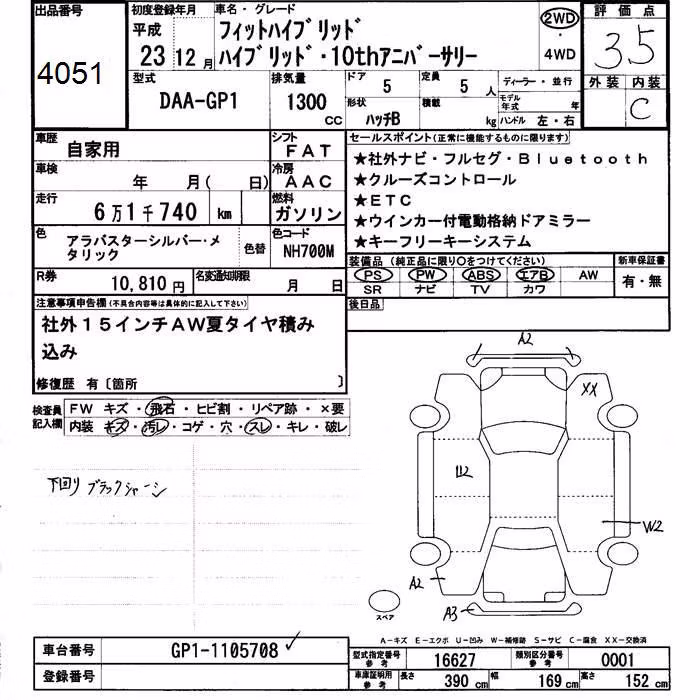 出品番号
4051
初度登録年月
平成
23年12月
車名・グレード
フィットハイブリッド
ハイブリッド・10thアニバーサリー
2WD
・
4WD
評価点
3.5
外装 内装
C
型式
DAA-GP1
排気量
1300
CC
ドア
5
定員
5人
形状
ハッチB
積載
kg
ディーラー・並行
モデル年式 年
ハンドル 左・右
車歴
自家用
シフト
FAT
車検
年 月( 日)
冷房
AAC
走行
6万1千740 km
燃料
ガソリン
色
アラバスターシルバー・メ
タリック
色替
色コード
NH700M
R券
10,810円
名変通知期限
月 日
セールスポイント(正常に機能するものに限ります)
★社外ナビ・フルセグ・Bluetooth
★クルーズコントロール
★ETC
★ウインカー付電動格納ドアミラー
★キーフリーキーシステム
装備品(純正品に限り○をつけてください)
PS PW ABS エアB AW
SR ナビ TV カワ
新車保証書
有・無
後日品
注意事項申告欄(不具合内容等は具体的に記入して下さい)
社外15インチAW夏タイヤ積み
込み
修復歴 有〔箇所 〕
検査員
記入欄
FW キズ・飛石・ヒビ割・リペア跡・×要
内装 キズ・汚レ・コゲ・穴・スレ・キレ・破レ
下回り ブラックシャーシ
A2
XX
U2
W2
A2
A3
スペア
A－キズ E－エクボ U－凹み W－補修跡 S－サビ C－腐食 XX－交換済
車台番号
GP1-1105708
登録番号
型式指定番号
参考
16627
類別区分番号
参考
0001
車庫証明用
参考
長さ
390 cm
幅
169 cm
高さ
152 cm